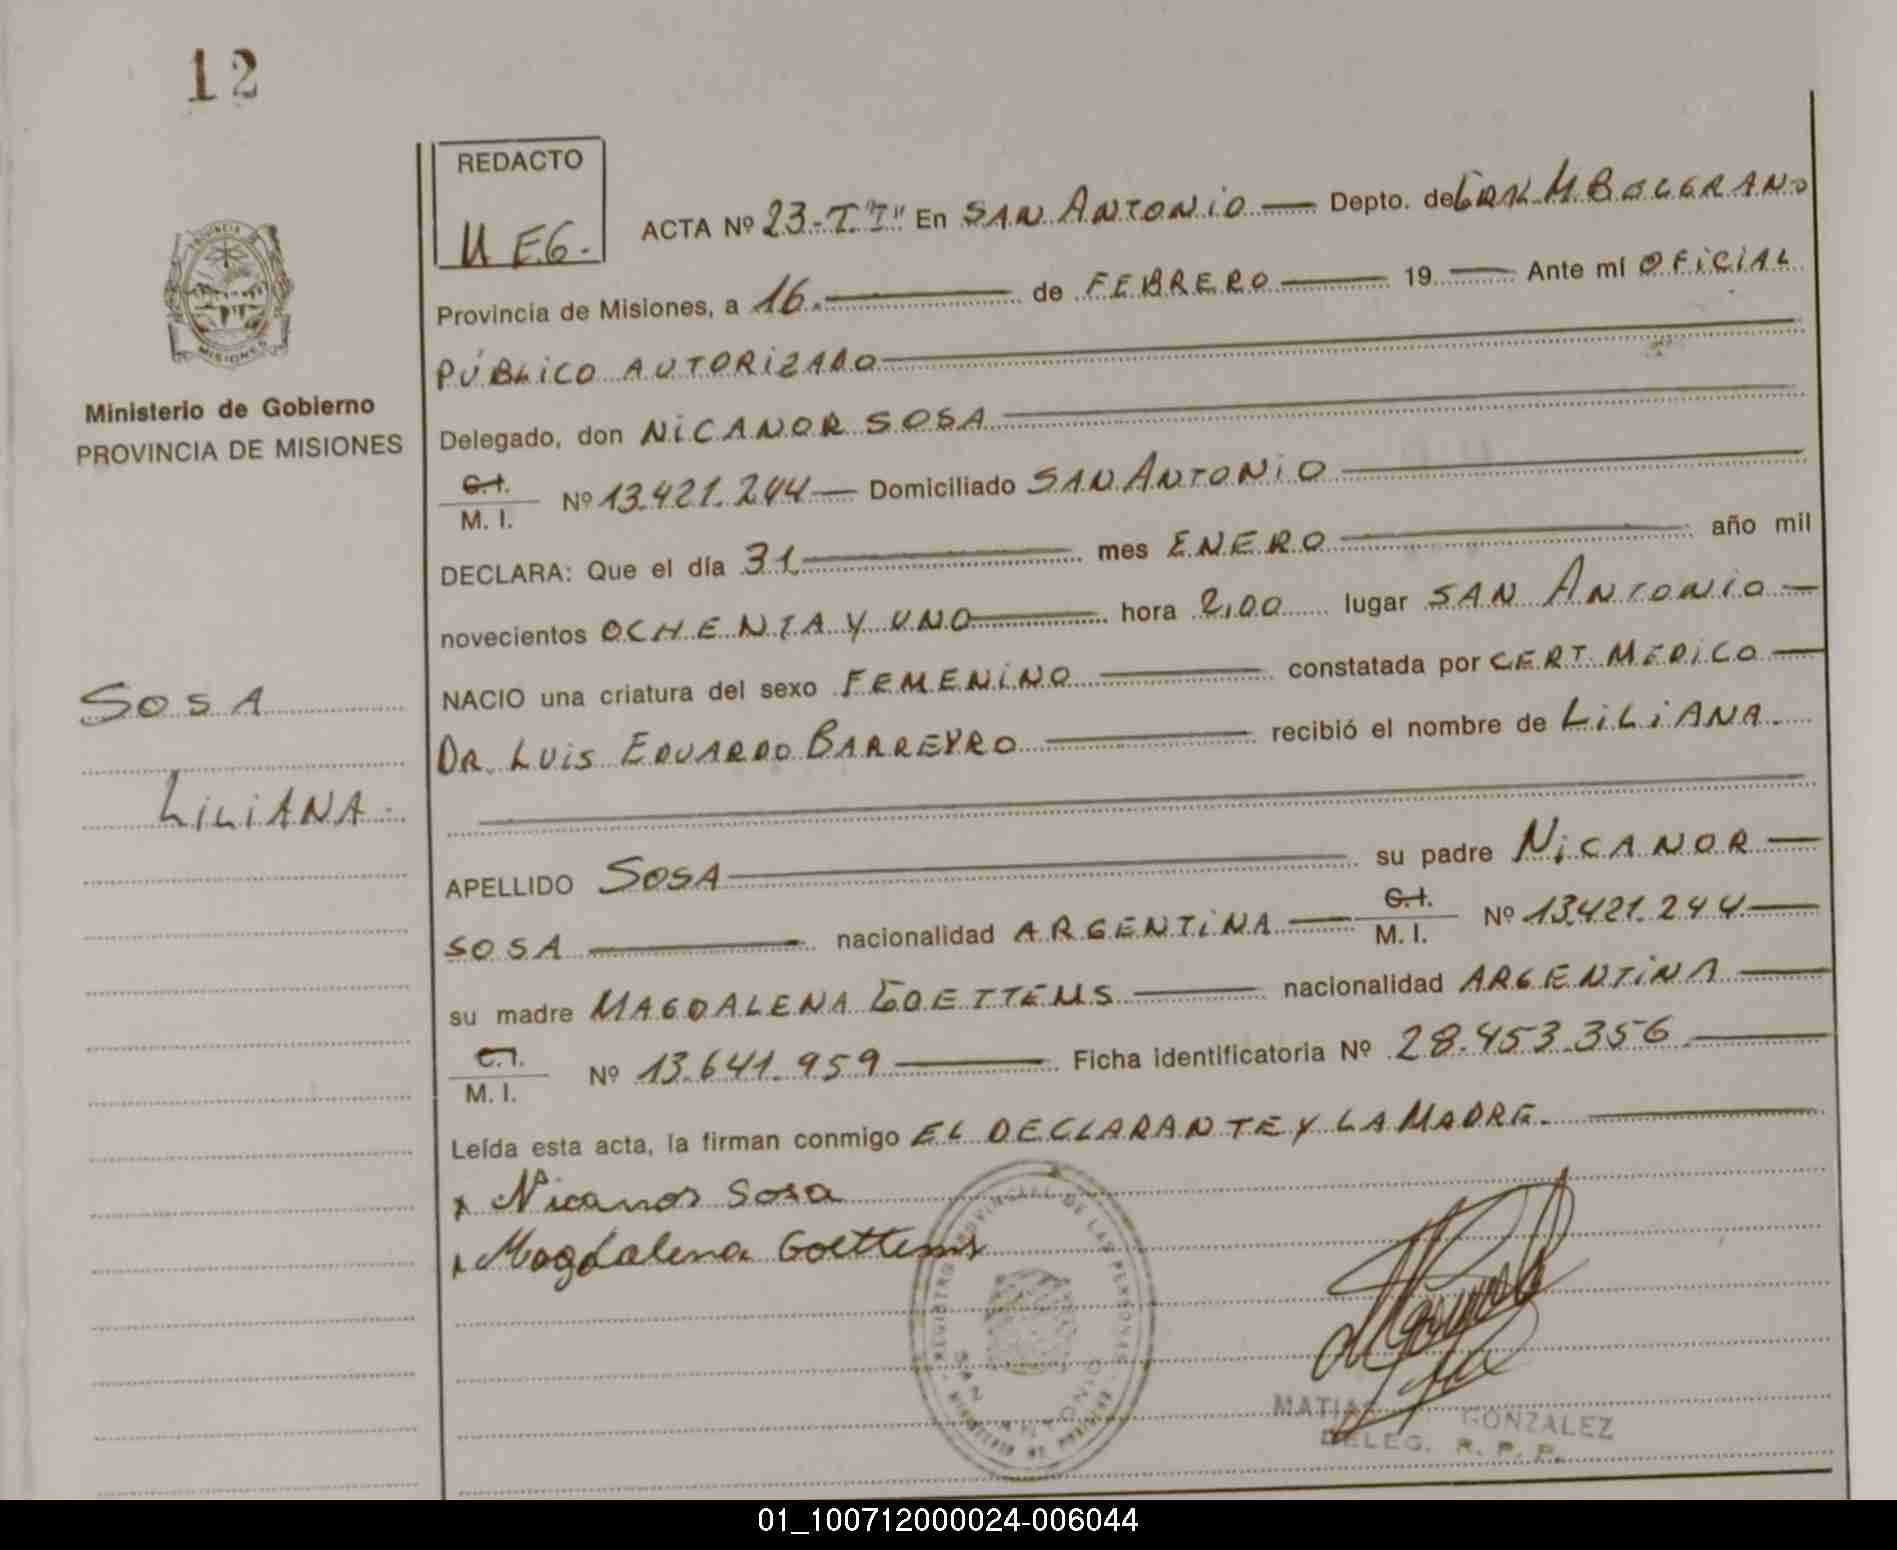 12
REDACTO
U E G.
ACTA Nº 23-T."I" En SAN ANTONIO — Depto. de GRAL M. BELGRANO
Provincia de Misiones, a 16. — de FEBRERO — 19 — Ante mí OFICIAL
PÚBLICO AUTORIZADO
Ministerio de Gobierno
PROVINCIA DE MISIONES
Delegado, don NICANOR SOSA
C.I.
M. I. Nº 13.421.244 — Domiciliado SAN ANTONIO
DECLARA: Que el día 31 — mes ENERO — año mil
novecientos OCHENTA Y UNO — hora 2,00 lugar SAN ANTONIO —
SOSA
LILIANA.
NACIO una criatura del sexo FEMENINO — constatada por CERT. MEDICO —
DR. LUIS EDUARDO BARREYRO — recibió el nombre de LILIANA.
APELLIDO SOSA — su padre NICANOR —
SOSA — nacionalidad ARGENTINA — C.I.
M. I. Nº 13.421.244 —
su madre MAGDALENA GOETTEMS — nacionalidad ARGENTINA —
C.I.
M. I. Nº 13.641.959 — Ficha identificatoria Nº 28.453.356 —
Leída esta acta, la firman conmigo EL DECLARANTE Y LA MADRE. —
x Nicanor Sosa
x Magdalena Goettems
REGISTRO PROVINCIAL DE LAS PERSONAS
SAN ANTONIO
MATIAS GONZALEZ
DELEG. R. P. P.
PROVINCIA DE
MISIONES
01_100712000024-006044